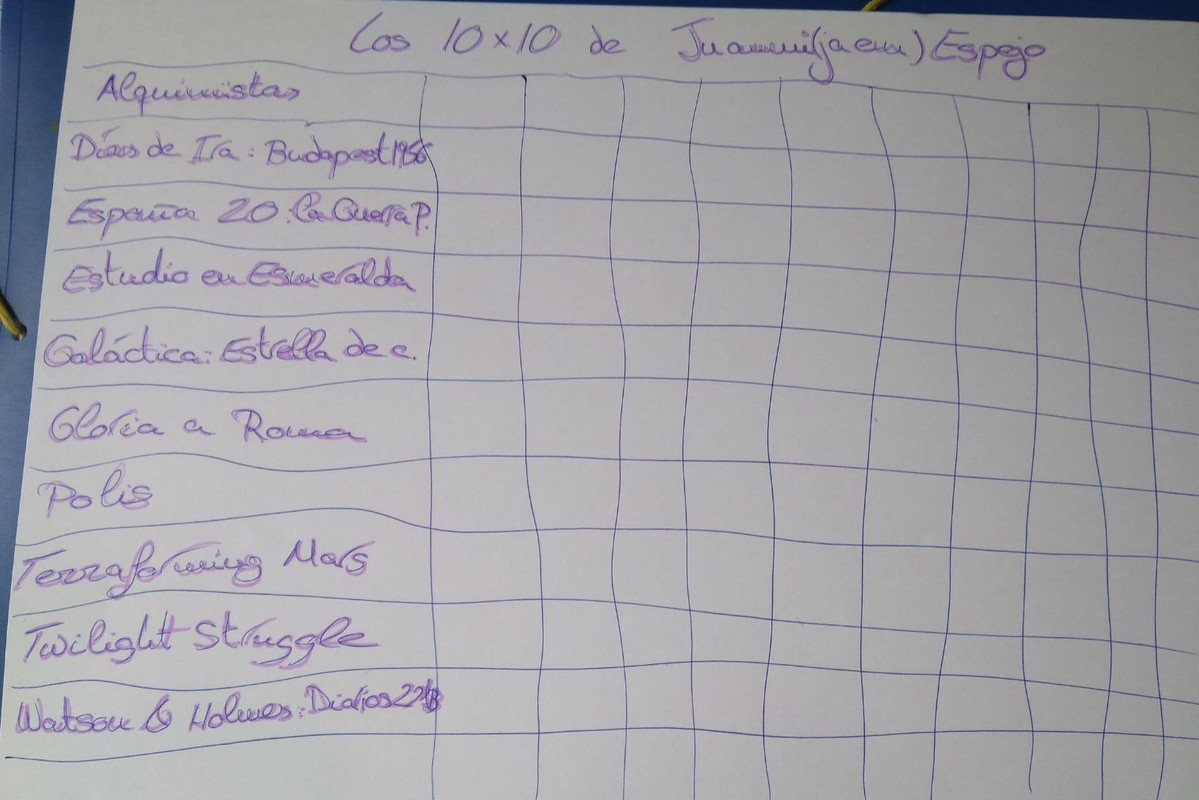 Los 10x10 de Juanmi(jaen) Espejo
Alquimistas
Días de Ira: Budapest 1956
España 20: La Guerra P.
Estudio en Esmeralda
Galáctica: Estrella de c.
Gloria a Roma
Polis
Terraforming Mars
Twilight Struggle
Watson & Holmes: Diarios 221B